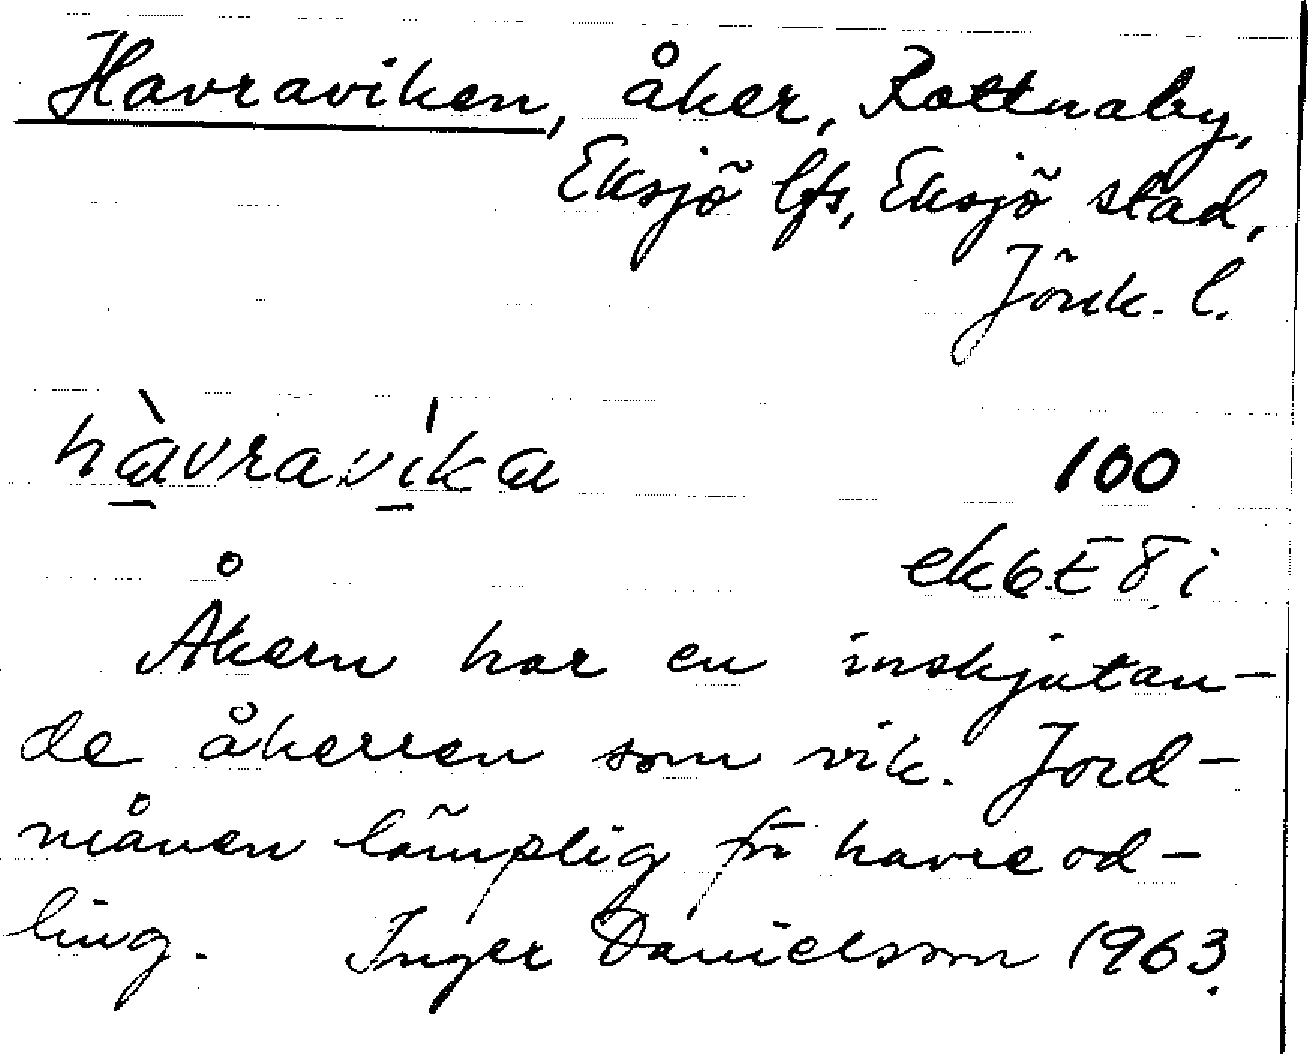 Havraviken, åker, Rottnaby,
Eksjö lfs, Eksjö stad,
Jönk. l.
hàvravíka 100
ek 6E8i
Åkern har en inskjutan-
de åkerren som vik. Jord-
månen lämplig för havreod-
ling. Inger Danielsson 1963.